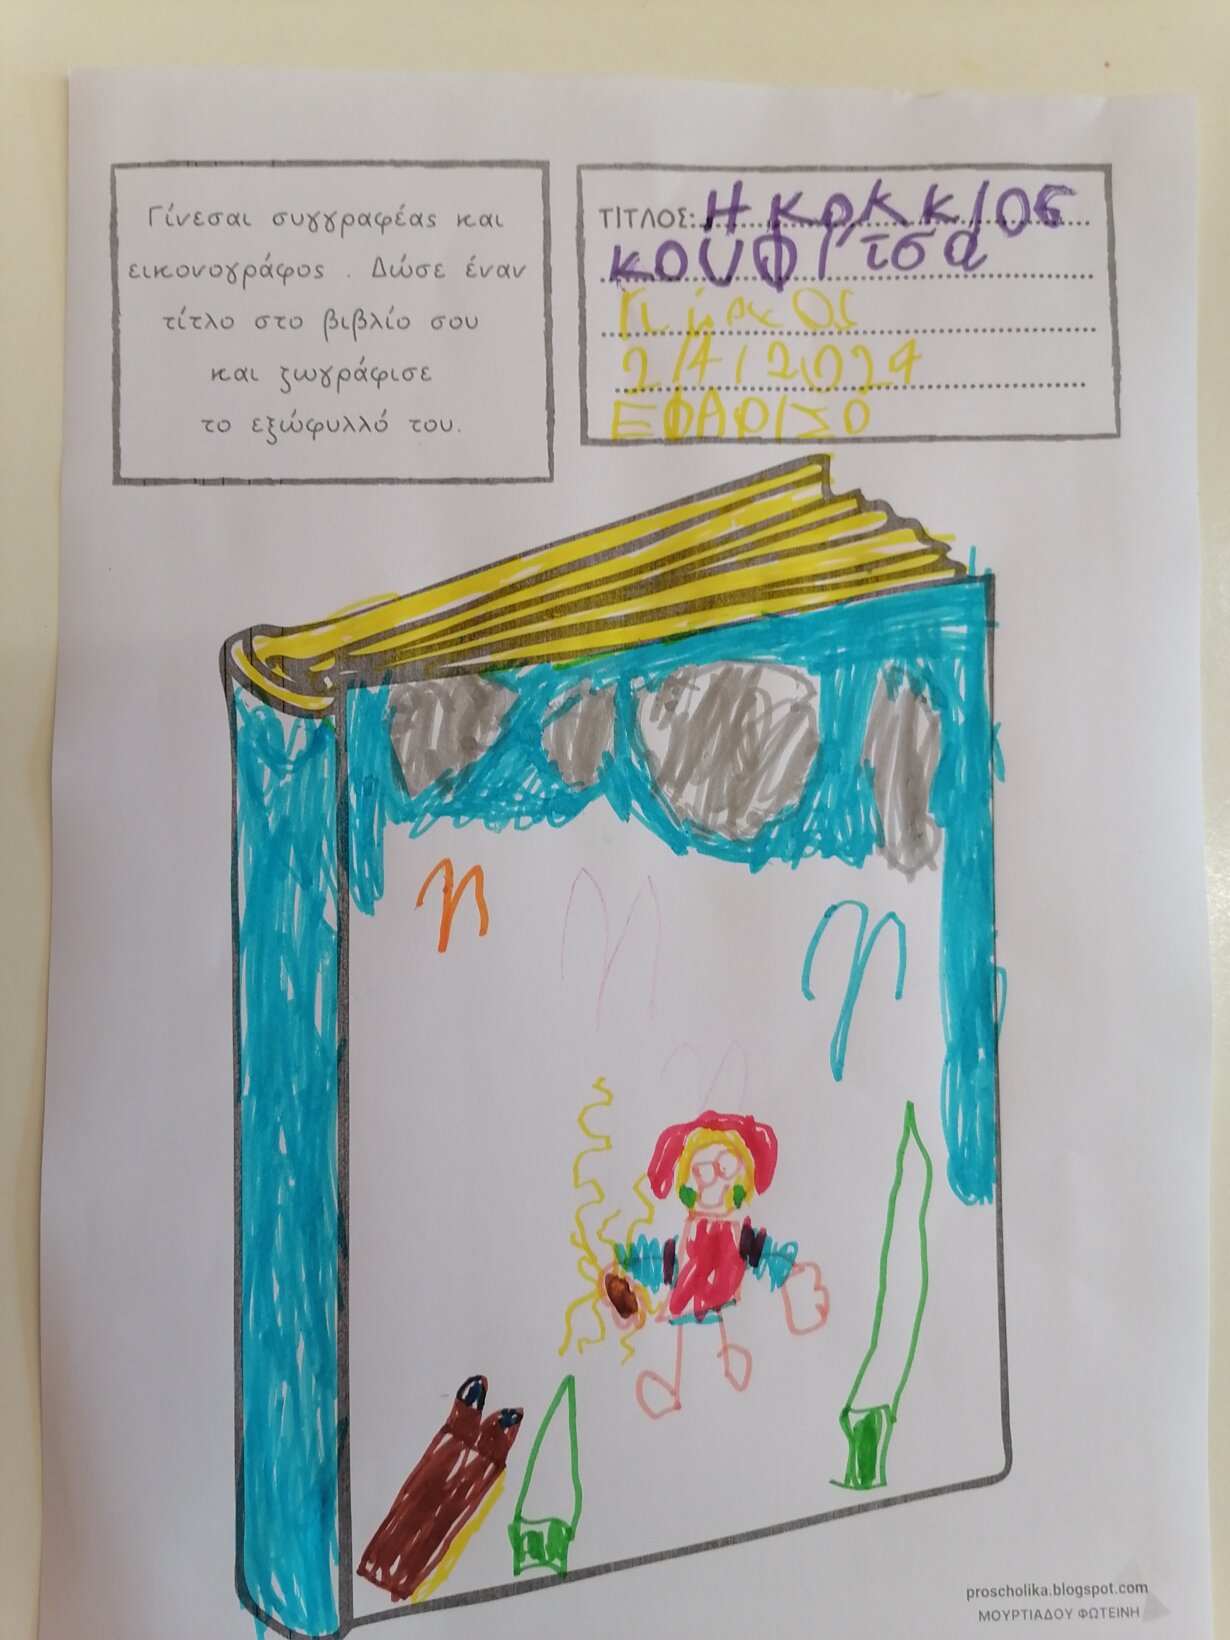 Γίνεσαι συγγραφέας και
εικονογράφος . Δώσε έναν
τίτλο στο βιβλίο σου
και ζωγράφισε
το εξώφυλλό του.
ΤΙΤΛΟΣ:
ΚΟΥΦΙτσα
2/4/2024
ΕΦΑΡΙΣΟ
proscholika.blogspot.com
ΜΟΥΡΤΙΑΔΟΥ ΦΩΤΕΙΝΗ